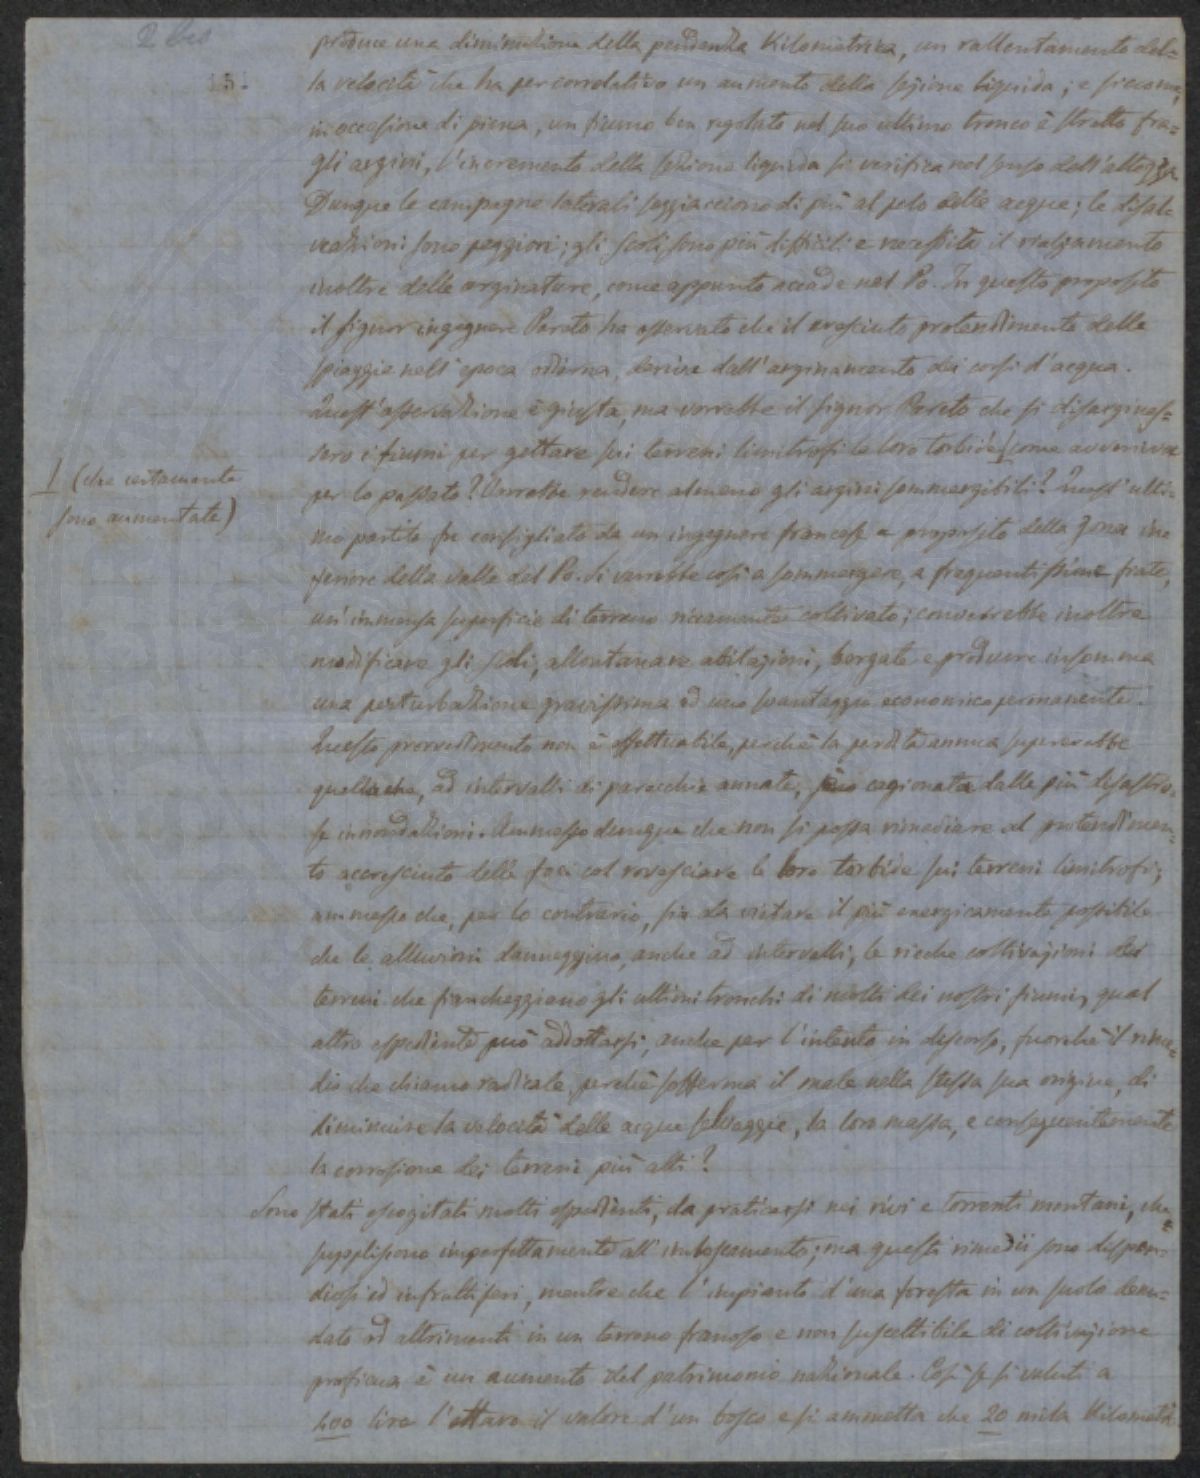 2 bis
produce una diminuzione della pendenza Kilometrica, un rallentamento del=
la velocità che ha per correlativo un aumento della sezione liquida; e siccome,
in occasione di piena, un fiume ben regolato nel suo ultimo tronco è stretto fra=
gli argini, l'incremento della sezione liquida si verifica nel senso dell'altezza
Dunque le campagne laterali soggiacciono di più al pelo delle acque; le disal=
veazioni sono peggiori; gli scoli sono più difficili e necessita il rialzamento
inoltre delle arginature, come appunto accade nel Po. In questo proposito
il signor ingegnere Pareto ha osservato che il cresciuto protendimento delle
spiaggie nell'epoca odierna, derive dall'arginamento dei corsi d'acqua.
Quest'osservazione è giusta, ma vorrebbe il signor Pareto che si disargines=
sero i fiumi per gettare sui terreni limitrofi le loro torbide I come avveniva
I (che certamente
sono aumentate)
per lo passato? Vorrebbe rendere almeno gli argini sommergibili? Quest'ulti=
mo partito fu consigliato da un ingegnere francese a proposito della zona in=
feriore della valle del Po. Si verrebbe così a sommergere, a frequentissime fiate,
un'immensa superficie di terreno riccamente coltivato; converrebbe inoltre
modificare gli scoli, allontanare abitazioni, borgate e produrre insomma
una perturbazione gravissima ed uno svantaggio economico permanente.
Questo provvedimento non è effettuabile, perché la perdita annua supererebbe
quella che, ad intervalli di parecchie annate, è cagionata dalle più disastro=
se innondazioni. Ammesso dunque che non si possa rimediare al protendimen=
to accresciuto delle foci col rovesciare le loro torbide sui terreni limitrofi;
ammesso che, per lo contrario, sia da vietare il più energicamente possibile
che le alluvioni danneggino, anche ad intervalli, le ricche coltivazioni dei
terreni che fiancheggiano gli ultimi tronchi di molti dei nostri fiumi, qual
altro espediente può addottarsi, anche per l'intento in discorso, fuorché il rime=
dio che chiamo radicale, perché sofferma il male nella stessa sua origine, di
diminuire la velocità delle acque selvaggie, la loro massa, e conseguentemente
la corrosione dei terreni più alti?
Sono stati escogitati molti espedienti, da praticarsi nei rivi e torrenti montani, che
suppliscono imperfettamente all'imboscamento; ma questi rimedii sono dispen=
diosi ed infruttiferi, mentre che l'impianto d'una foresta in un suolo denu=
dato od altrimenti in un terreno franoso e non suscettibile di coltivazione
proficua è un aumento del patrimonio nazionale. Così se si valuti a
400 lire l'ettaro il valore d'un bosco e si ammetta che 20 mila Kilometri